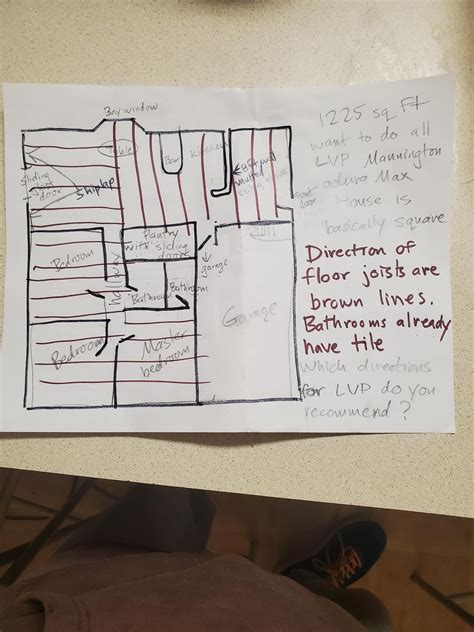 Bay window
Table
Bar
Kitchen
8ft wall
sliding
door
Shiplap
front
door
Pantry
with sliding
doors
Bedroom
Hallway
Bathroom
Bathroom
garage
Garage
Bedroom
Master
bedroom
1225 sq Ft
want to do all
LVP Mannington
adura Max
House is
basically square
Direction of
floor joists are
brown lines.
Bathrooms already
have tile
Which directions
for LVP do you
recommend?